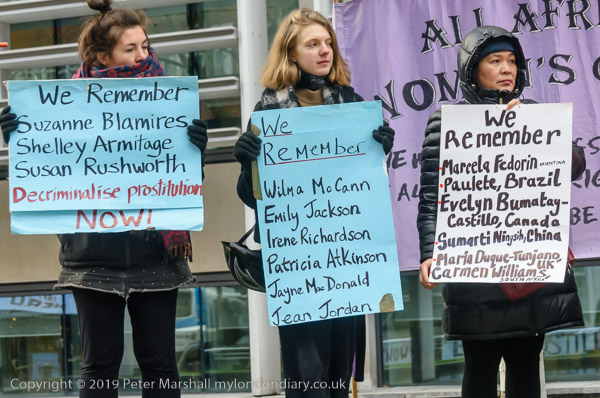 We Remember
Suzanne Blamires
Shelley Armitage
Susan Rushworth
Decriminalise prostitution
NOW!
We
Remember
Wilma McCann
Emily Jackson
Irene Richardson
Patricia Atkinson
Jayne MacDonald
Jean Jordan
We
Remember
- Marcela Fedorin - ARGENTINA
- Paulete, Brazil
- Evelyn Bumatay-
Castillo, Canada
- Sumarti Ningsih, China
- Maria Duque-Tunjano, UK
- Carmen Williams,
SOUTH AFRICA
ALL AFRI
Copyright © 2019 Peter Marshall mylondondiary.co.uk